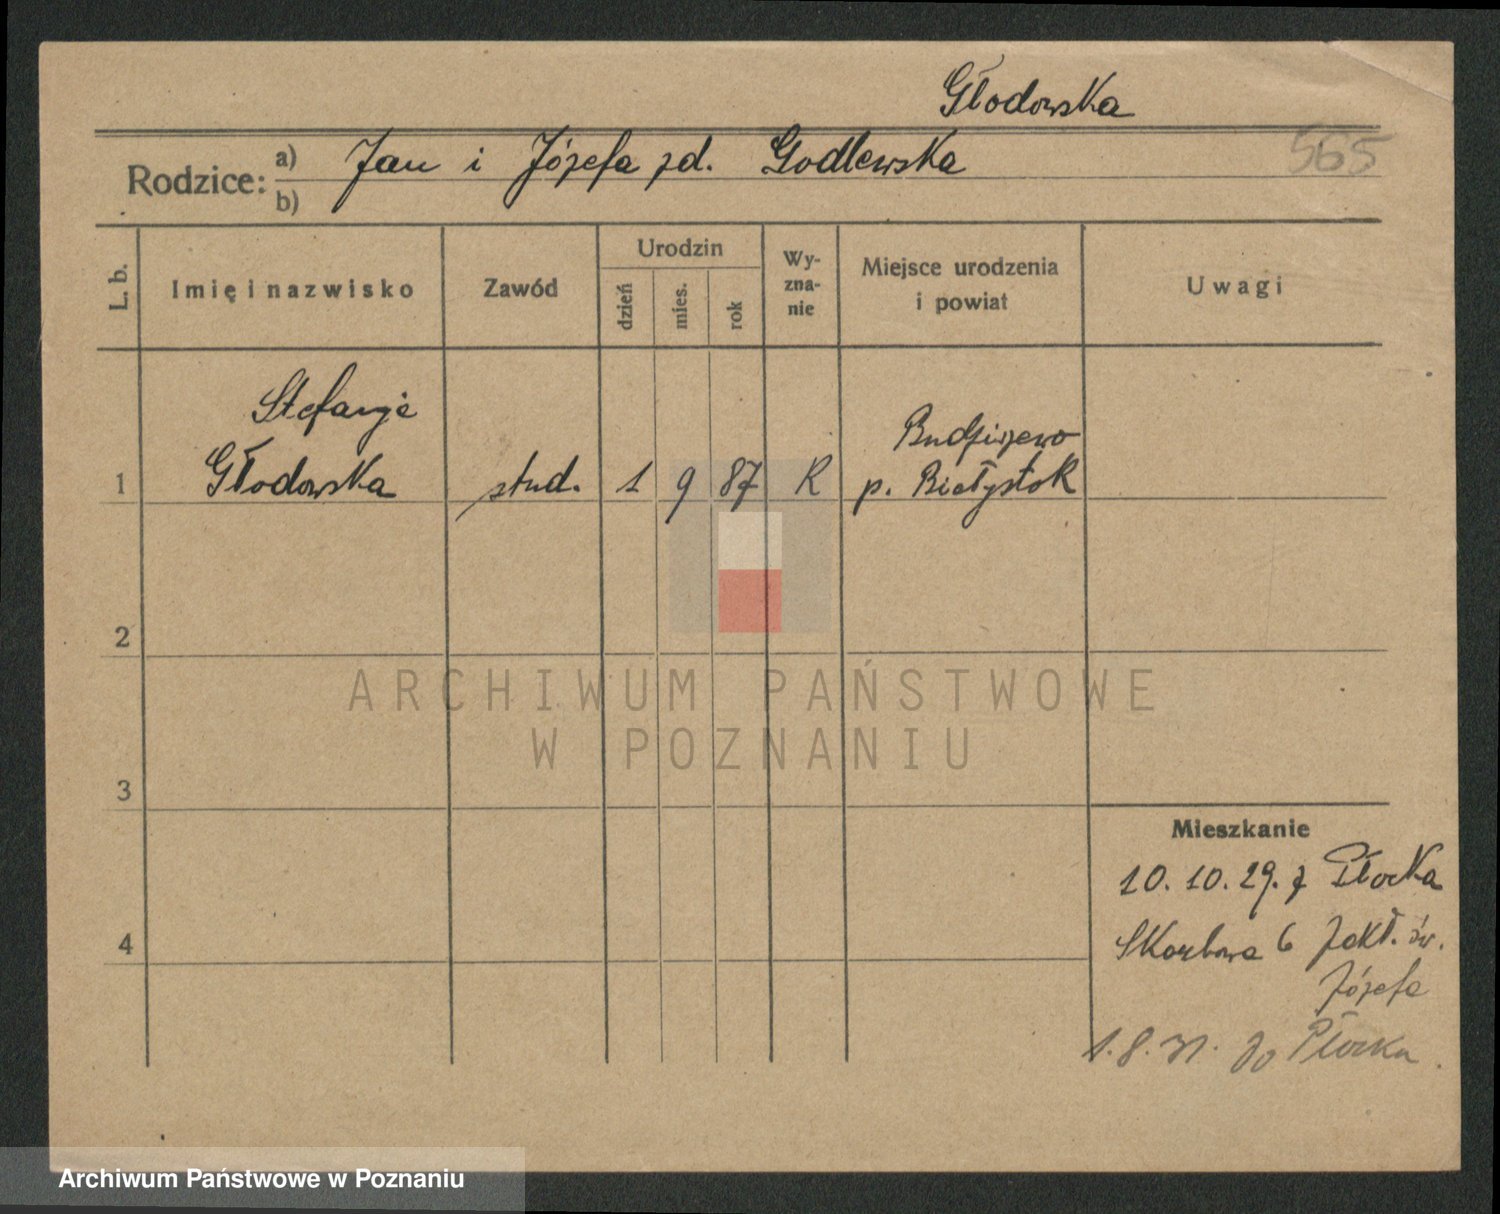 Głodowska
565
Rodzice: a) Jan i Józefa zd. Godlewska
b)
L. b.
Imię i nazwisko
Zawód
Urodzin
dzień
mies.
rok
Wy-
zna-
nie
Miejsce urodzenia
i powiat
Uwagi
Stefanja
Budziszewo
1 Głodowska stud. 1 9 87 R p. Białystok
2
ARCHIWUM PAŃSTWOWE
W POZNANIU
3
Mieszkanie
10. 10. 29. z Płocka
4
Skarbowa 6 Zakł. św.
Józefa
1. 8. 31. do Płocka
Archiwum Państwowe w Poznaniu